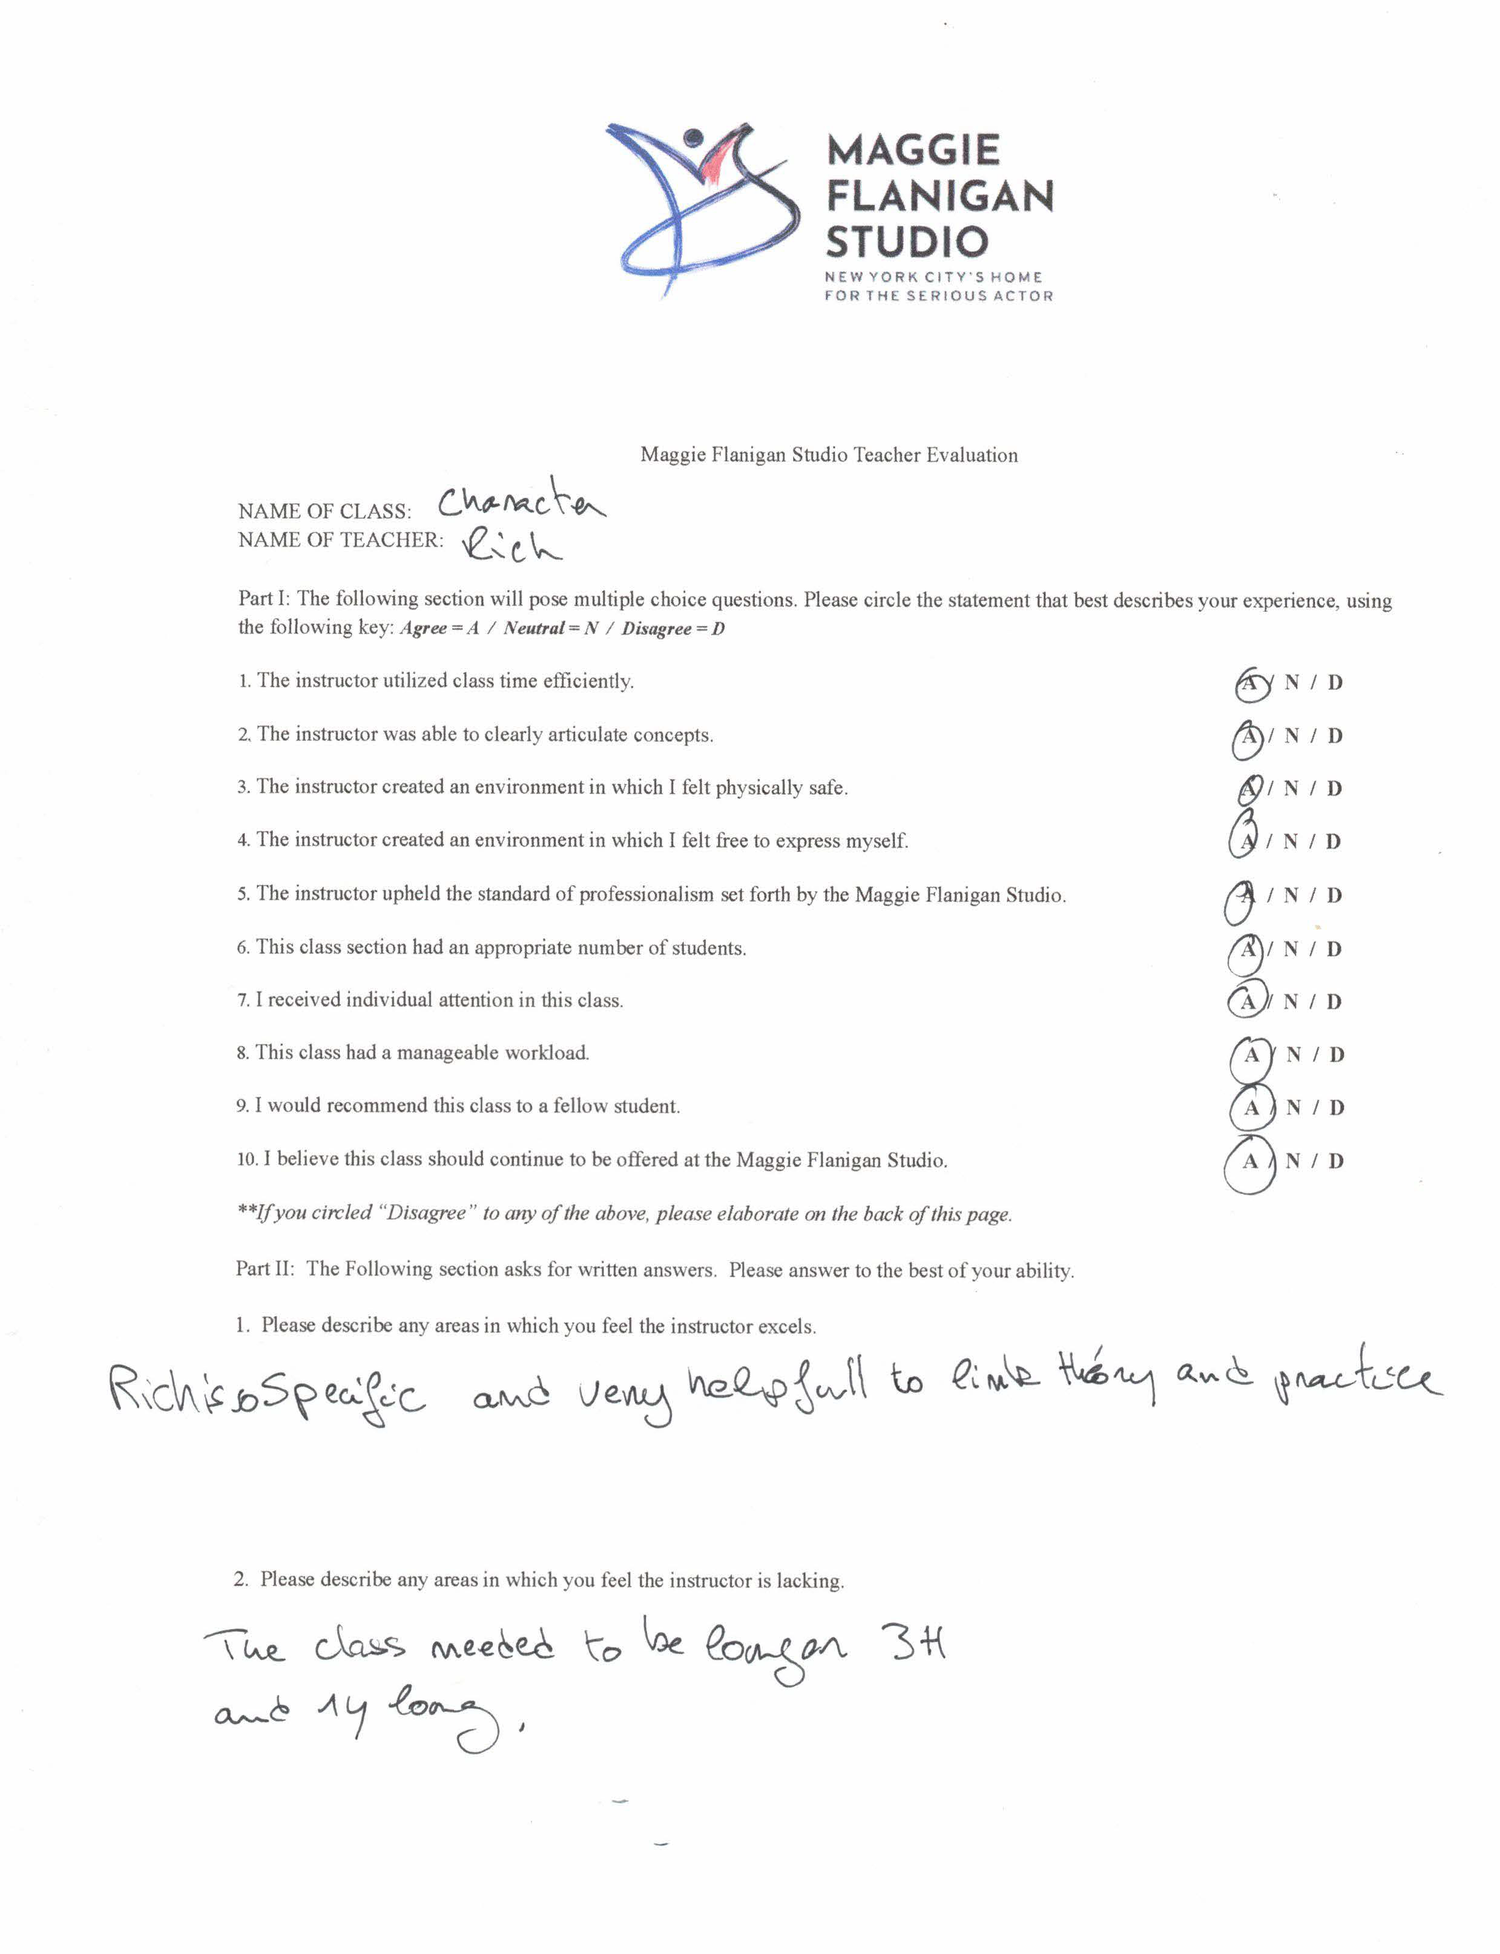 MAGGIE
FLANIGAN
STUDIO
NEW YORK CITY'S HOME
FOR THE SERIOUS ACTOR
Maggie Flanigan Studio Teacher Evaluation
NAME OF CLASS: Character
NAME OF TEACHER: Rich
Part I: The following section will pose multiple choice questions. Please circle the statement that best describes your experience, using
the following key: Agree = A / Neutral = N / Disagree = D
1. The instructor utilized class time efficiently. A / N / D
2. The instructor was able to clearly articulate concepts. A / N / D
3. The instructor created an environment in which I felt physically safe. A / N / D
4. The instructor created an environment in which I felt free to express myself. A / N / D
5. The instructor upheld the standard of professionalism set forth by the Maggie Flanigan Studio. A / N / D
6. This class section had an appropriate number of students. A / N / D
7. I received individual attention in this class. A / N / D
8. This class had a manageable workload. A / N / D
9. I would recommend this class to a fellow student. A / N / D
10. I believe this class should continue to be offered at the Maggie Flanigan Studio. A / N / D
**If you circled "Disagree" to any of the above, please elaborate on the back of this page.
Part II: The Following section asks for written answers. Please answer to the best of your ability.
1. Please describe any areas in which you feel the instructor excels.
Rich is so Specific and very helpfull to link théory and practice
2. Please describe any areas in which you feel the instructor is lacking.
The class needed to be longer 3H
and 1y long.